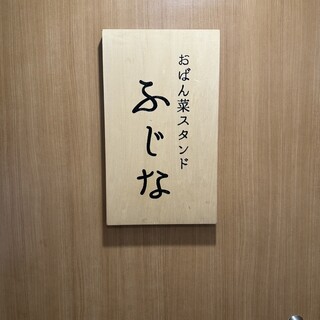 おばん菜スタンド
ふじな